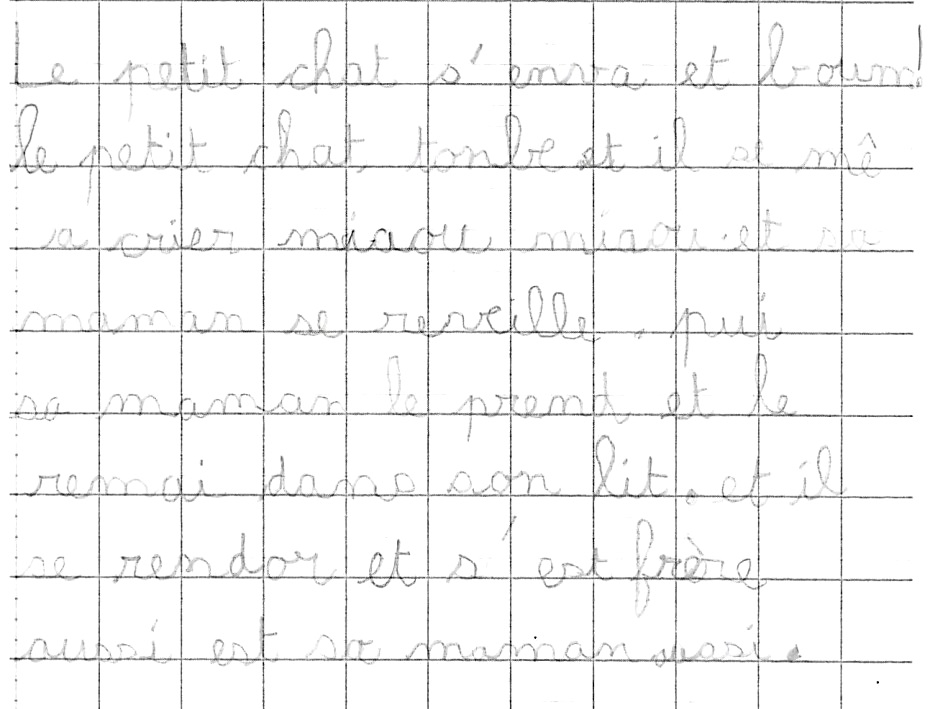 Le petit chat s'enva et boum!
le petit chat tonbe et il se mê
a crier miaou miaou et sa
maman se reveille. pui
sa maman le prend et le
remai dans son lit. et il
se rendor et s'est frère
aussi est sa maman ausi.